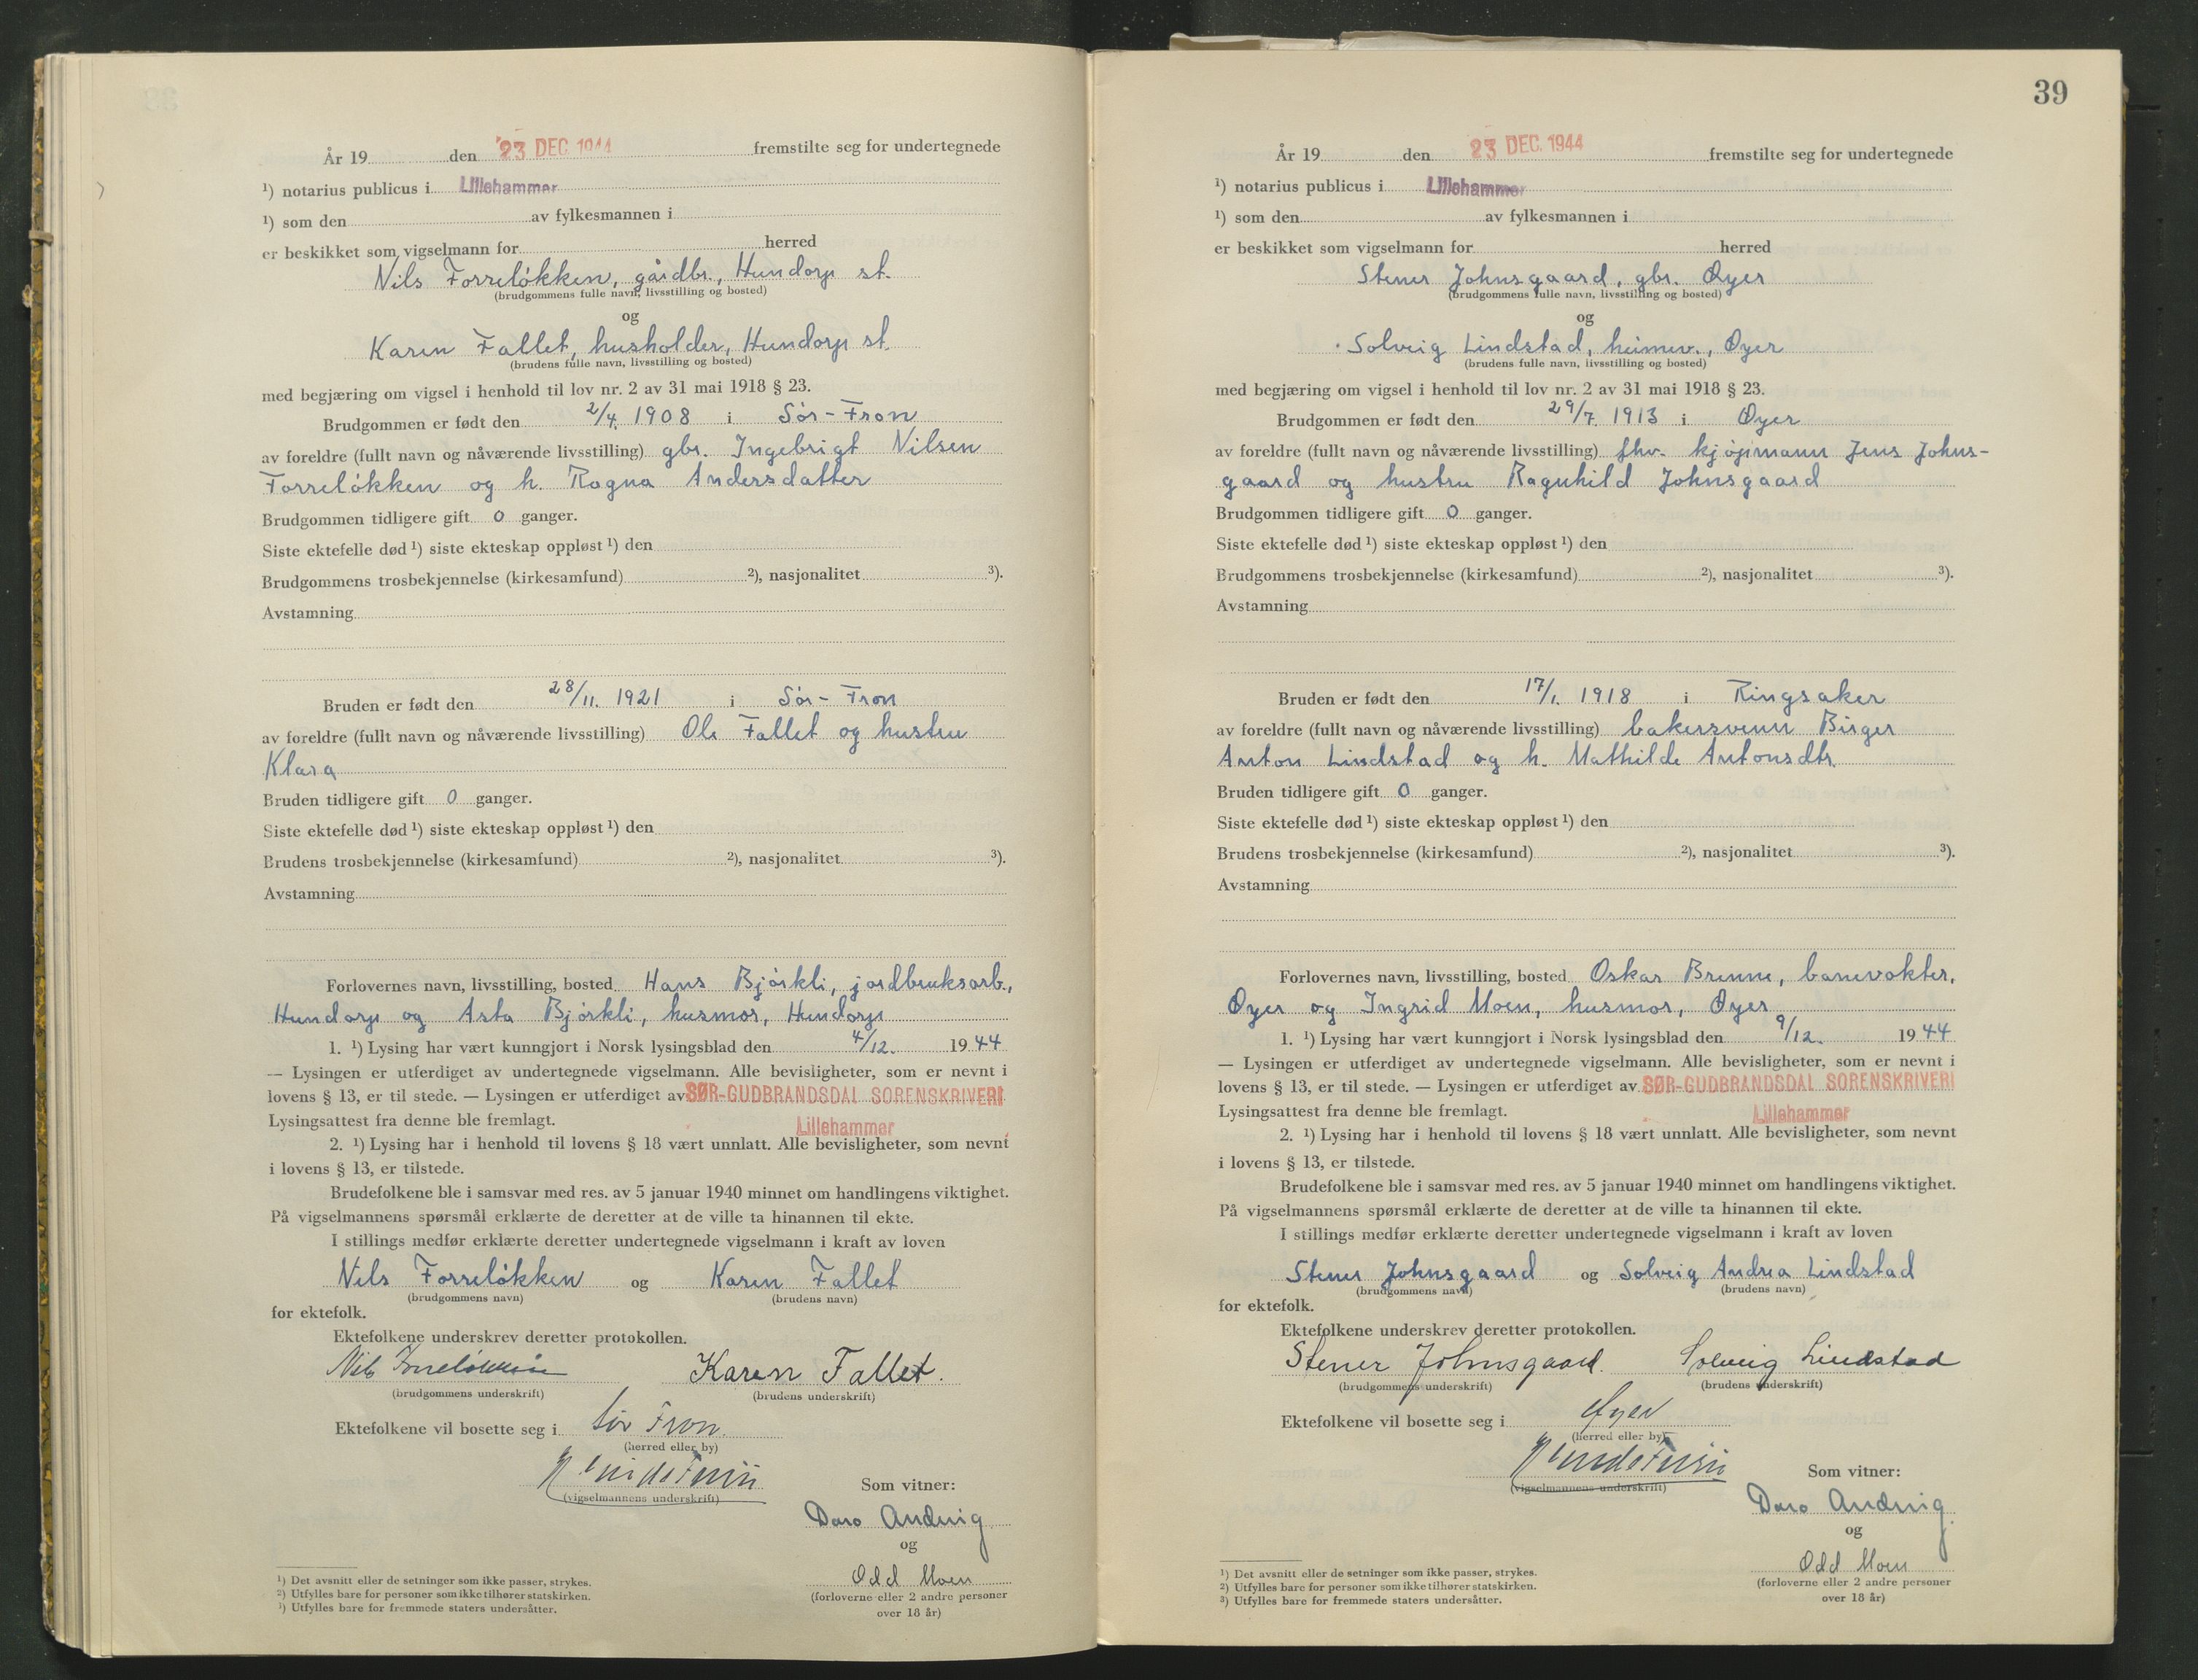 År 19 den 23 DEC. 1944 fremstilte seg for undertegnede
¹) notarius publicus i Lillehammer
¹) som den av fylkesmannen i
er beskikket som vigselmann for herred
Nils Forreløkken, gårdbr., Hundorp st.
(brudgommens fulle navn, livsstilling og bosted)
og
Karen Fallet, husholder, Hundorp st.
(brudens fulle navn, livsstilling og bosted)
med begjæring om vigsel i henhold til lov nr. 2 av 31 mai 1918 § 23.
Brudgommen er født den 2/4. 1908 i Sør-Fron
av foreldre (fullt navn og nåværende livsstilling) gbr. Ingebrigt Nilsen
Forreløkken og h. Ragna Andersdatter
Brudgommen tidligere gift 0 ganger.
Siste ektefelle død ¹) siste ekteskap oppløst ¹) den
Brudgommens trosbekjennelse (kirkesamfund) ²), nasjonalitet ³).
Avstamning
Bruden er født den 28/11. 1921 i Sør-Fron
av foreldre (fullt navn og nåværende livsstilling) Ole Fallet og hustru
Klara
Bruden tidligere gift 0 ganger.
Siste ektefelle død ¹) siste ekteskap oppløst ¹) den
Brudens trosbekjennelse (kirkesamfund) ²), nasjonalitet ³).
Avstamning
Forlovernes navn, livsstilling, bosted Hans Bjørkli, jordbruksarb.,
Hundorp og Asta Bjørkli, husmor, Hundorp
1. ¹) Lysing har vært kunngjort i Norsk lysingsblad den 4/12. 1944
— Lysingen er utferdiget av undertegnede vigselmann. Alle bevisligheter, som er nevnt i
lovens § 13, er til stede. — Lysingen er utferdiget av SØR-GUDBRANDSDAL SORENSKRIVERI
Lysingsattest fra denne ble fremlagt. Lillehammer
2. ¹) Lysing har i henhold til lovens § 18 vært unnlatt. Alle bevisligheter, som nevnt
i lovens § 13, er tilstede.
Brudefolkene ble i samsvar med res. av 5 januar 1940 minnet om handlingens viktighet.
På vigselmannens spørsmål erklærte de deretter at de ville ta hinannen til ekte.
I stillings medfør erklærte deretter undertegnede vigselmann i kraft av loven
Nils Forreløkken og Karen Fallet
(brudgommens navn) (brudens navn)
for ektefolk.
Ektefolkene underskrev deretter protokollen.
Nils Forreløkken Karen Fallet.
(brudgommens underskrift) (brudens underskrift)
Ektefolkene vil bosette seg i Sør Fron.
(herred eller by)
(vigselmannens underskrift)
Som vitner:
og
Odd Moen
(forloverne eller 2 andre personer
over 18 år)
¹) Det avsnitt eller de setninger som ikke passer, strykes.
²) Utfylles bare for personer som ikke tilhører statskirken.
³) Utfylles bare for fremmede staters undersåtter.
39
År 19 den 23 DEC. 1944 fremstilte seg for undertegnede
¹) notarius publicus i Lillehammer
¹) som den av fylkesmannen i
er beskikket som vigselmann for herred
Stener Johnsgaard, gbr. Øyer
(brudgommens fulle navn, livsstilling og bosted)
og
Solveig Lindstad, heimev., Øyer
(brudens fulle navn, livsstilling og bosted)
med begjæring om vigsel i henhold til lov nr. 2 av 31 mai 1918 § 23.
Brudgommen er født den 29/7. 1913 i Øyer
av foreldre (fullt navn og nåværende livsstilling) fhv. kjøpmann Jens Johns-
gaard og hustru Ragnhild Johnsgaard
Brudgommen tidligere gift 0 ganger.
Siste ektefelle død ¹) siste ekteskap oppløst ¹) den
Brudgommens trosbekjennelse (kirkesamfund) ²), nasjonalitet ³).
Avstamning
Bruden er født den 17/1. 1918 i Ringsaker
av foreldre (fullt navn og nåværende livsstilling) bakersvenn Birger
Anton Lindstad og h. Mathilde Antonsdtr.
Bruden tidligere gift 0 ganger.
Siste ektefelle død ¹) siste ekteskap oppløst ¹) den
Brudens trosbekjennelse (kirkesamfund) ²), nasjonalitet ³).
Avstamning
Forlovernes navn, livsstilling, bosted Oskar Brenne, banevokter,
Øyer og Ingrid Moen, husmor, Øyer
1. ¹) Lysing har vært kunngjort i Norsk lysingsblad den 9/12. 1944
— Lysingen er utferdiget av undertegnede vigselmann. Alle bevisligheter, som er nevnt i
lovens § 13, er til stede. — Lysingen er utferdiget av SØR-GUDBRANDSDAL SORENSKRIVERI
Lysingsattest fra denne ble fremlagt. Lillehammer
2. ¹) Lysing har i henhold til lovens § 18 vært unnlatt. Alle bevisligheter, som nevnt
i lovens § 13, er tilstede.
Brudefolkene ble i samsvar med res. av 5 januar 1940 minnet om handlingens viktighet.
På vigselmannens spørsmål erklærte de deretter at de ville ta hinannen til ekte.
I stillings medfør erklærte deretter undertegnede vigselmann i kraft av loven
Stener Johnsgaard og Solveig Andrea Lindstad
(brudgommens navn) (brudens navn)
for ektefolk.
Ektefolkene underskrev deretter protokollen.
Stener Johnsgaard. Solveig Lindstad
(brudgommens underskrift) (brudens underskrift)
Ektefolkene vil bosette seg i Øyer
(herred eller by)
(vigselmannens underskrift)
Som vitner:
og
Odd Moen
(forloverne eller 2 andre personer
over 18 år)
¹) Det avsnitt eller de setninger som ikke passer, strykes.
²) Utfylles bare for personer som ikke tilhører statskirken.
³) Utfylles bare for fremmede staters undersåtter.